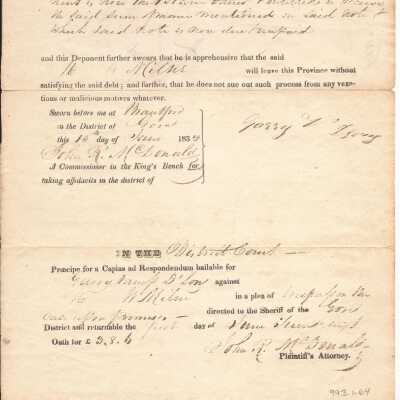 the said Sum of money mentioned in said note
which said note is now due & unpaid
and this Deponent further swears that he is apprehensive that the said
W Milne will leave this Province without
satisfying the said debt; and further, that he does not sue out such process from any vexa-
tious or malicious motives whatever.
Sworn before me at Brantford
in the District of Gore
this 16th day of June 183
John R. McDonald
A Commissioner in the King's Bench for
taking affidavits in the district of
IN THE District Court
Præcipe for a Capias ad Respondendum bailable for
against
W Milne in a plea of Trespass on the
Case upon promises directed to the Sheriff of the Gore
District and returnable the first day of Term
Oath for £ 5.8.6
John R. McDonald
Plaintiff's Attorney.
993.1.64